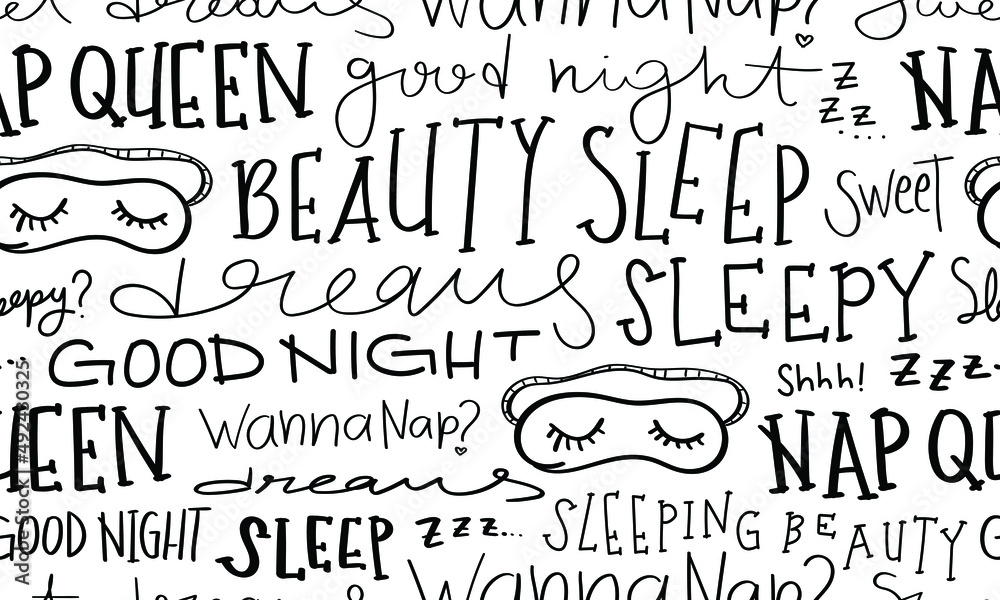 dreams Wanna Nap? Swe
AP QUEEN good night z z z... NA
BEAUTY SLEEP Sweet
eepy? dreams SLEEPY Sle
GOOD NIGHT Shhh! z z z..
UEEN Wanna Nap? NAP QU
dreams
GOOD NIGHT SLEEP z z z... SLEEPING BEAUTY G
Wanna Nap?
Adobe Stock | #492430325